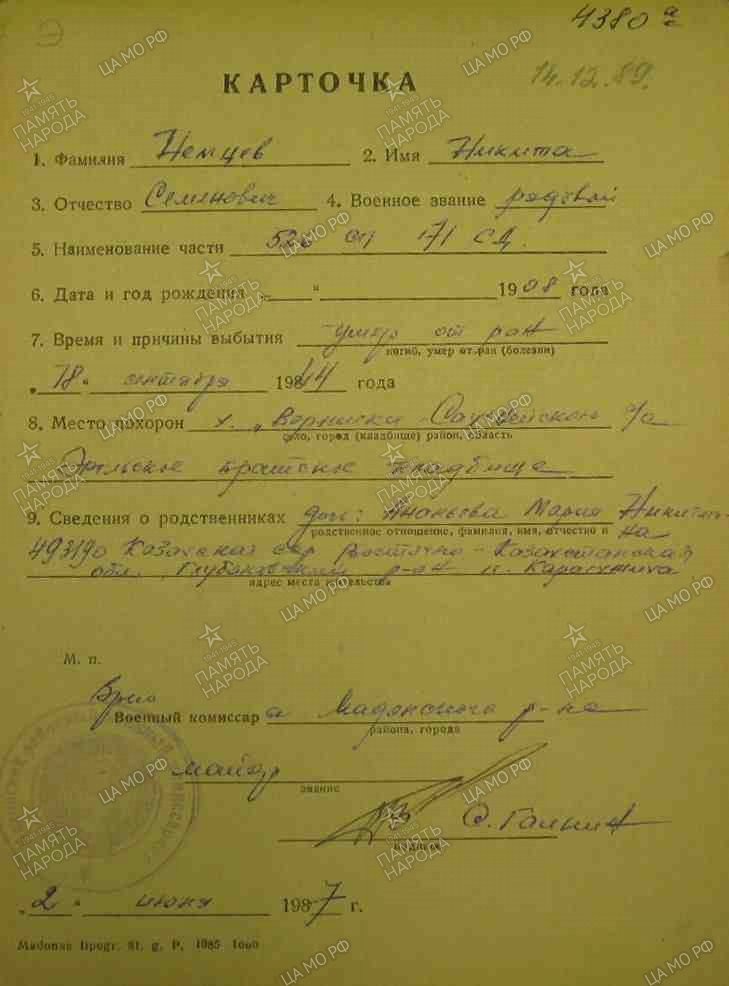 4380 с
Э
14.12.89.
КАРТОЧКА
1. Фамилия Немцев 2. Имя Никита
3. Отчество Семенович 4. Военное звание рядовой
5. Наименование части 526 сп 171 СД
6. Дата и год рождения „ “ 1908 года
7. Время и причины выбытия умер от ран
погиб, умер от ран (болезни)
„18“ сентября 1944 года
8. Место похорон х. „ с/с
село, город (кладбище) район, область
братское кладбище
9. Сведения о родственниках дочь: Ананьева Мария Никитич-
родственное отношение, фамилия, имя, отчество и
на
493190 Казахская сср Восточно-Казахстанская
обл. Глубоковский р-он
адрес места жительства
М. п.
Врио
Военный комиссар а Мадонского р-на
района, города
майор
звание
О. Галкин
подпись
„2“ июня 1987 г.
Madonas tipogr. St. g. P. 1985 1000
ПАМЯТЬ НАРОДА
ЦАМО РФ